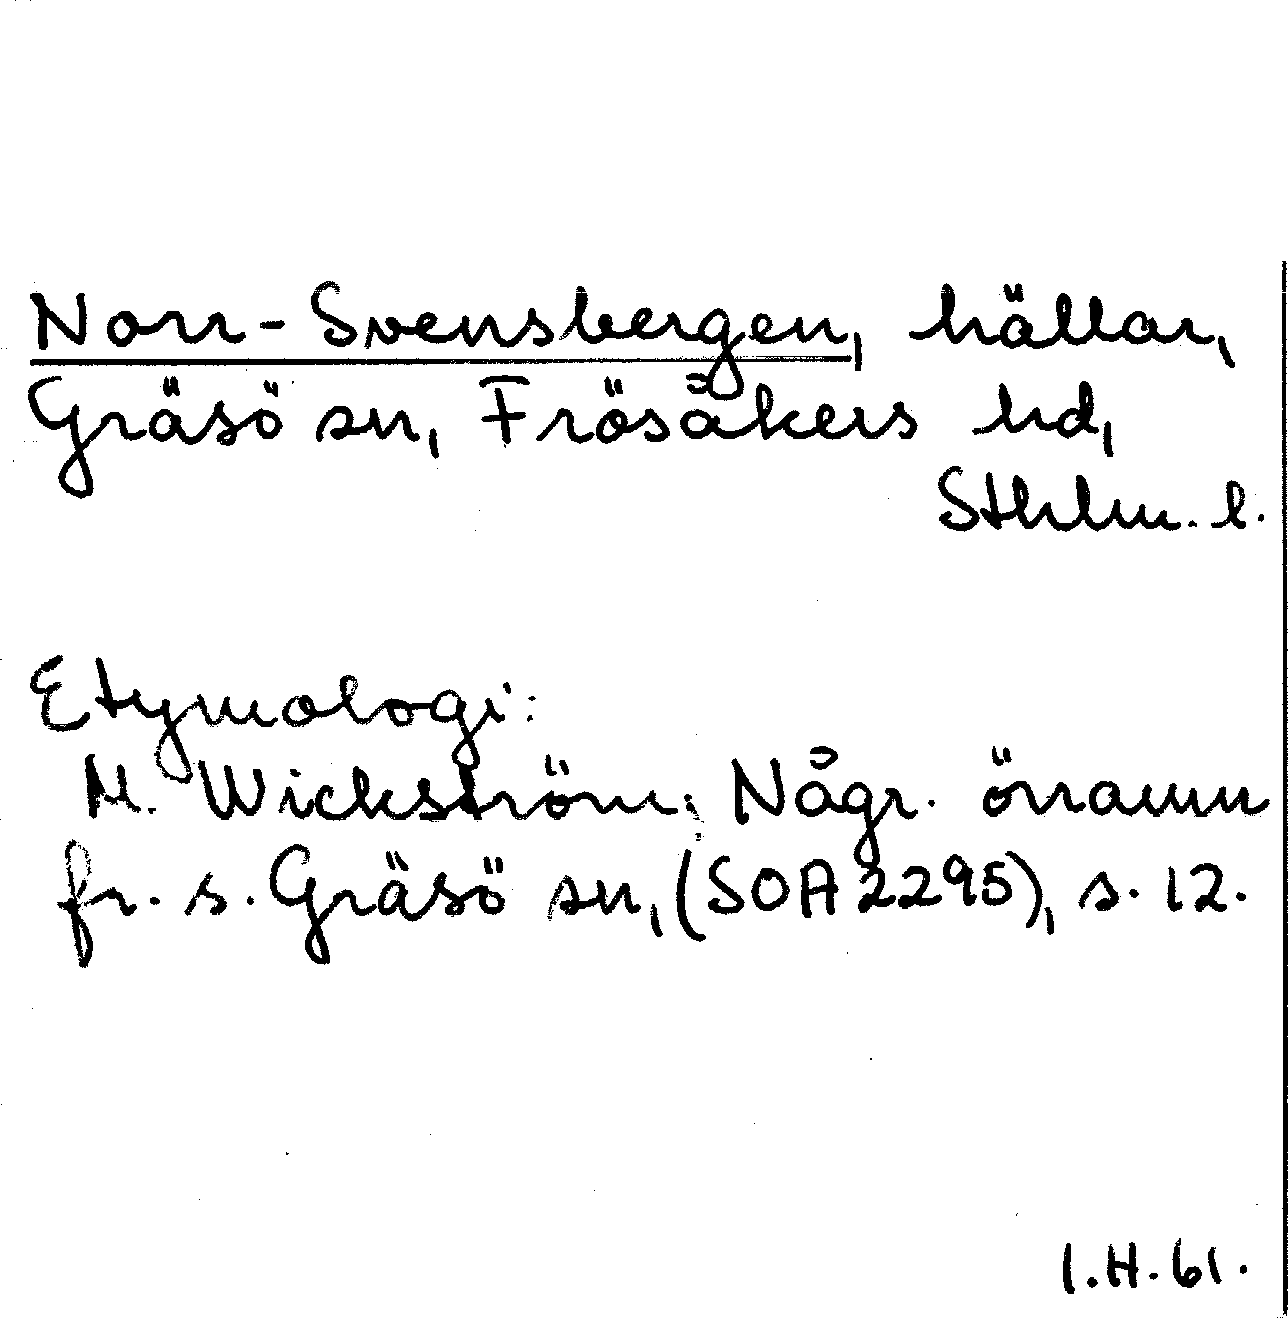 Norr-Svensbergen, hällar,
Gräsö sn, Frösåkers hd,
Sthlm. l.
Etymologi:
M. Wickström: Någr. önamn
fr. s. Gräsö sn, (SOA 2295), s. 12.
I.H. 61.